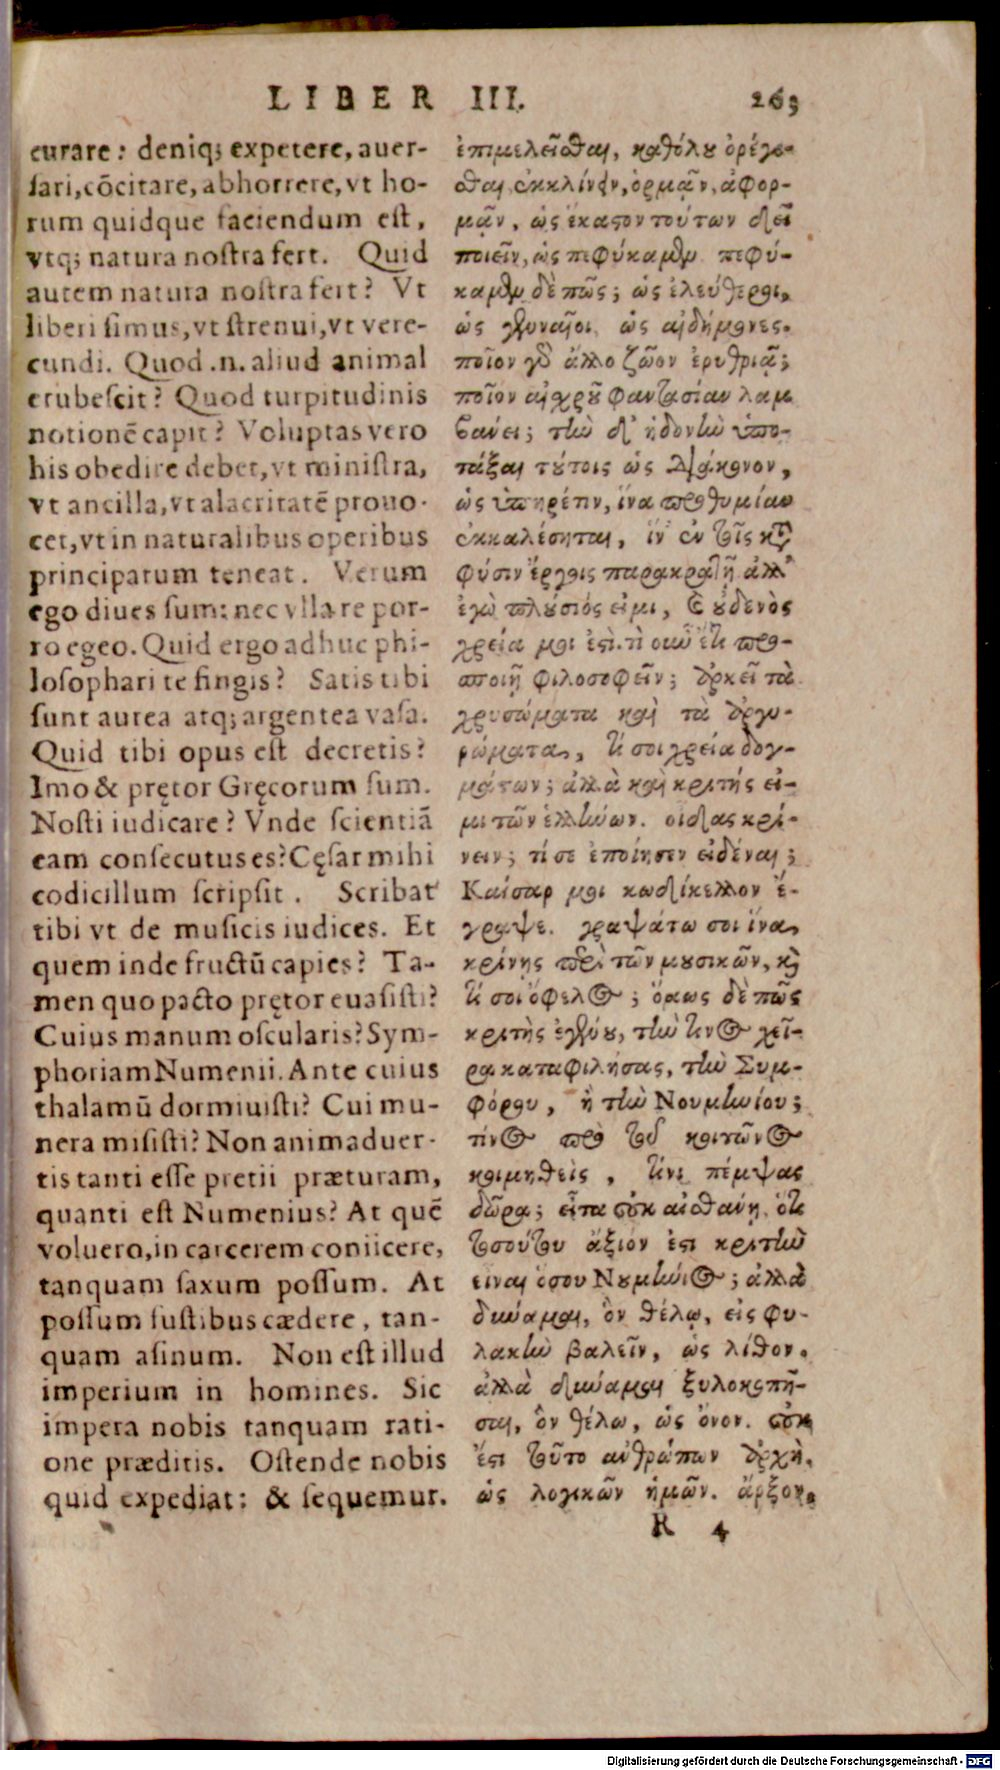 LIBER III. 263
curare: deniq; expetere, auer-
sari, cōcitare, abhorrere, vt ho-
rum quidque faciendum est,
vtq; natura nostra fert. Quid
autem natura nostra fert? Vt
liberi simus, vt strenui, vt vere-
cundi. Quod .n. aliud animal
erubescit? Quod turpitudinis
notionē capit? Voluptas vero
his obedire debet, vt ministra,
vt ancilla, vt alacritatē prouo-
cet, vt in naturalibus operibus
principatum teneat. Verum
ego diues sum: nec vlla re por-
ro egeo. Quid ergo adhuc phi-
losophari te fingis? Satis tibi
sunt aurea atq; argentea vasa.
Quid tibi opus est decretis?
Imo & prętor Gręcorum sum.
Nosti iudicare? Vnde scientiā
eam consecutus es? Cęsar mihi
codicillum scripsit. Scribat
tibi vt de musicis iudices. Et
quem inde fructū capies? Ta-
men quo pacto prętor euasisti?
Cuius manum oscularis? Sym-
phoriam Numenii. Ante cuius
thalamū dormiuisti? Cui mu-
nera misisti? Non animaduer-
tis tanti esse pretii præturam,
quanti est Numenius? At quē
voluero, in carcerem coniicere,
tanquam saxum possum. At
possum fustibus cædere, tan-
quam asinum. Non est illud
imperium in homines. Sic
impera nobis tanquam rati-
one præditis. Ostende nobis
quid expediat: & sequemur.
ἐπιμελεῖσθαι, καθόλου ὀρέγε-
σθαι, ἐκκλίνειν, ὁρμᾶν, ἀφορ-
μᾶν, ὡς ἕκαστον τούτων δεῖ
ποιεῖν, ὡς πεφύκαμεν. πεφύ-
καμεν δὲ πῶς; ὡς ἐλεύθεροι,
ὡς γενναῖοι, ὡς αἰδήμονες.
ποῖον γὸ ἄλλο ζῶον ἐρυθριᾷ;
ποῖον αἰχροῦ φαντασίαν λαμ
βάνει; τὴν δ' ἡδονὴν ὑπο-
τάξαι τούτοις ὡς διάκονον,
ὡς ὑπηρέτιν, ἵνα προθυμίας
ἐκκαλέσηται, ἵν' ἐν τοῖς κτ̀
φύσιν ἔργοις παρακρατῇ ἀλλ'
ἐγὼ πλούσιός εἰμι, καὶ οὐδενὸς
χρεία μοι ἐστι. τὶ οὖν ἔτι προσ-
ποιῇ φιλοσοφεῖν; ἀρκεῖ τὰ
χρυσώματα καὶ τὰ ἀργυ-
ρώματα, τί σοι χρεία δογ-
μάτων; ἀλλὰ καὶ κριτής εἰ-
μι τῶν ἑλλήνων. οἶδας κρί-
νειν; τί σε ἐποίησεν εἰδέναι;
Καίσαρ μοι κωδίκελλον ἔ-
γραψε. γραψάτω σοι ἵνα
κρίνῃς περὶ τῶν μουσικῶν, καὶ
τί σοι ὄφελος; ὅμως δὲ πῶς
κριτὴς ἐγένου, τὴν τίνος χεῖ-
ρα καταφιλήσας, τὴν Συμ-
φόρου, ἢ τὴν Νουμηνίου;
τίνος πρὸ τοῦ κοιτῶνος
κοιμηθεὶς, τίνι πέμψας
δῶρα; εἶτα οὐκ αἰσθάνῃ, ὅτι
τοσούτου ἄξιόν ἐστι κριτὴν
εἶναι ὅσου Νουμήνιος; ἀλλὰ
δύναμαι, ὃν θέλω, εἰς φυ-
λακὴν βαλεῖν, ὡς λίθον.
ἀλλὰ δύναμαι ξυλοκοπῆ-
σαι, ὃν θέλω, ὡς ὄνον. οὐκ
ἔστι τοῦτο ἀνθρώπων ἀρχή.
ὡς λογικῶν ἡμῶν. ἄρξον.
R 4
Digitalisierung gefördert durch die Deutsche Forschungsgemeinschaft - DFG